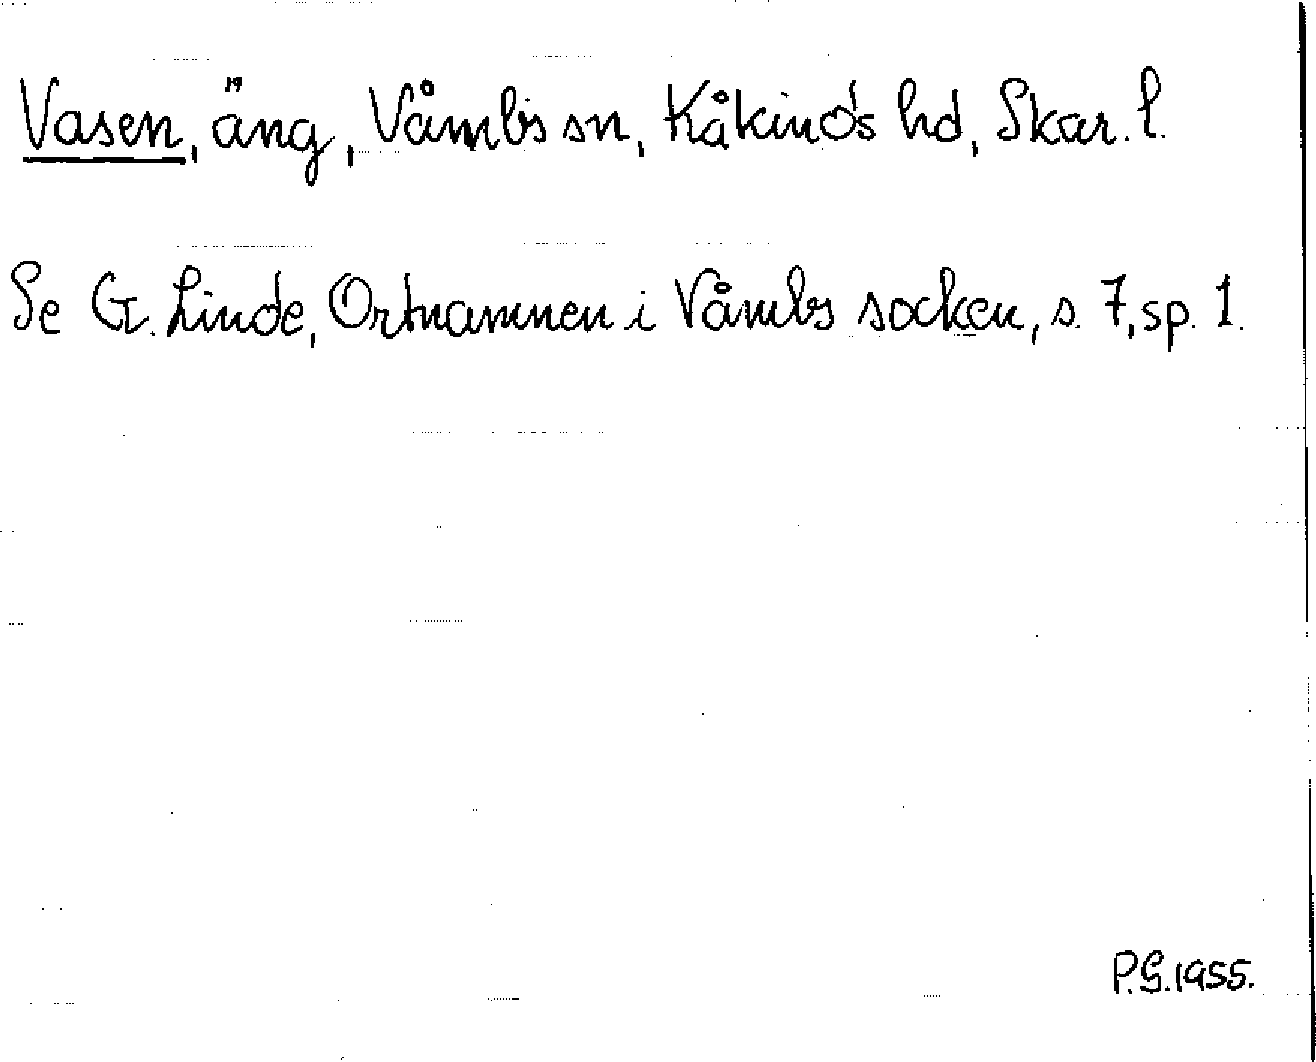 Vasen, äng, Våmbs sn, Kåkinds hd, Skar. l.
Se G. Linde, Ortnamnen i Våmbs socken, s. 7, sp. 1.
P.G. 1955.